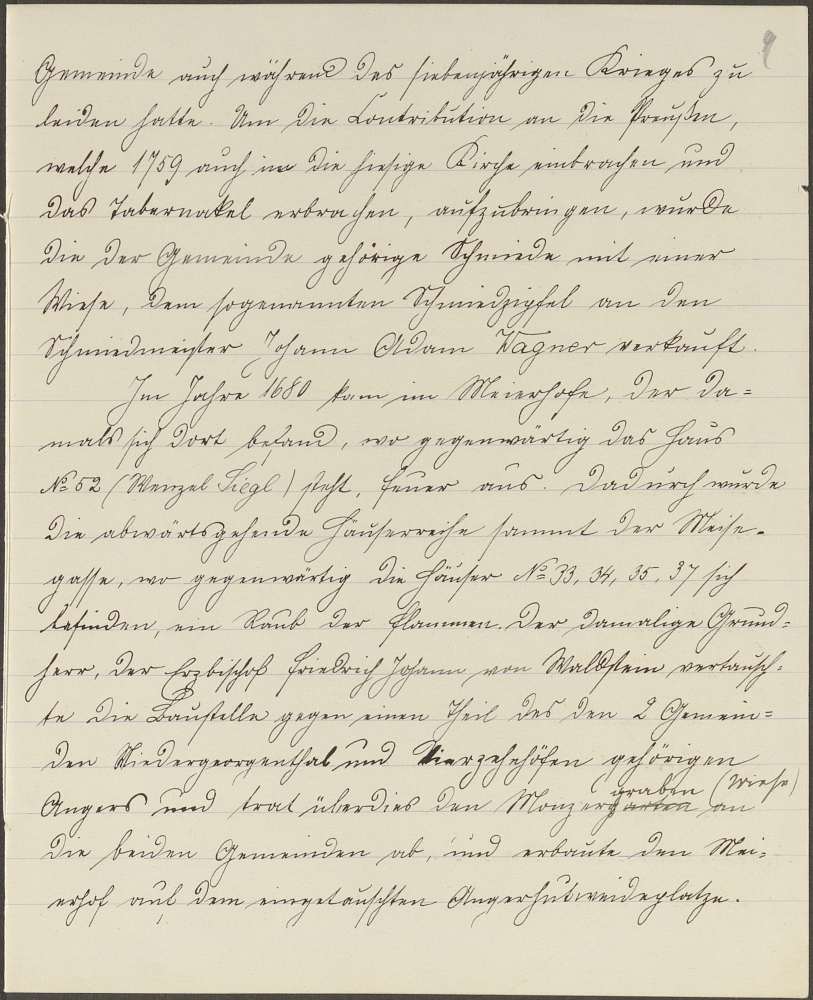 9
Gemeinde auch während des siebenjährigen Krieges zu
leiden hatte. Um die Contribution an die Preußen,
welche 1759 auch in die hiesige Kirche einbrachen und
das Tabernakel erbrachen, aufzubringen, wurde
die der Gemeinde gehörige Schmiede mit einer
Wiese, dem sogenannten Schmiedzipfel an den
Schmiedmeister Johann Adam Wagner verkauft.
Im Jahre 1680 kam im Meierhofe, der da=
mals sich dort befand, wo gegenwärtig das Haus
№ 52 (Wenzel Siegl) steht, Feuer aus. Dadurch wurde
die abwärtsgehende Häuserreihe sammt der Meise-
gasse, wo gegenwärtig die Häuser № 33, 34, 35, 37 sich
befinden, ein Raub der Flammen. Der damalige Grund=
herr, der Erzbischof Friedrich Johann von Waldstein vertausch=
te die Baustelle gegen einen Theil des den 2 Gemein=
den Niedergeorgenthal und Vierzehnhöfen gehörigen
graben (Wiese)
Angers und trat überdies den Monzergarten an
die beiden Gemeinden ab, und erbaute den Mei=
erhof auf dem eingetauschten Angerhutweideplatze.